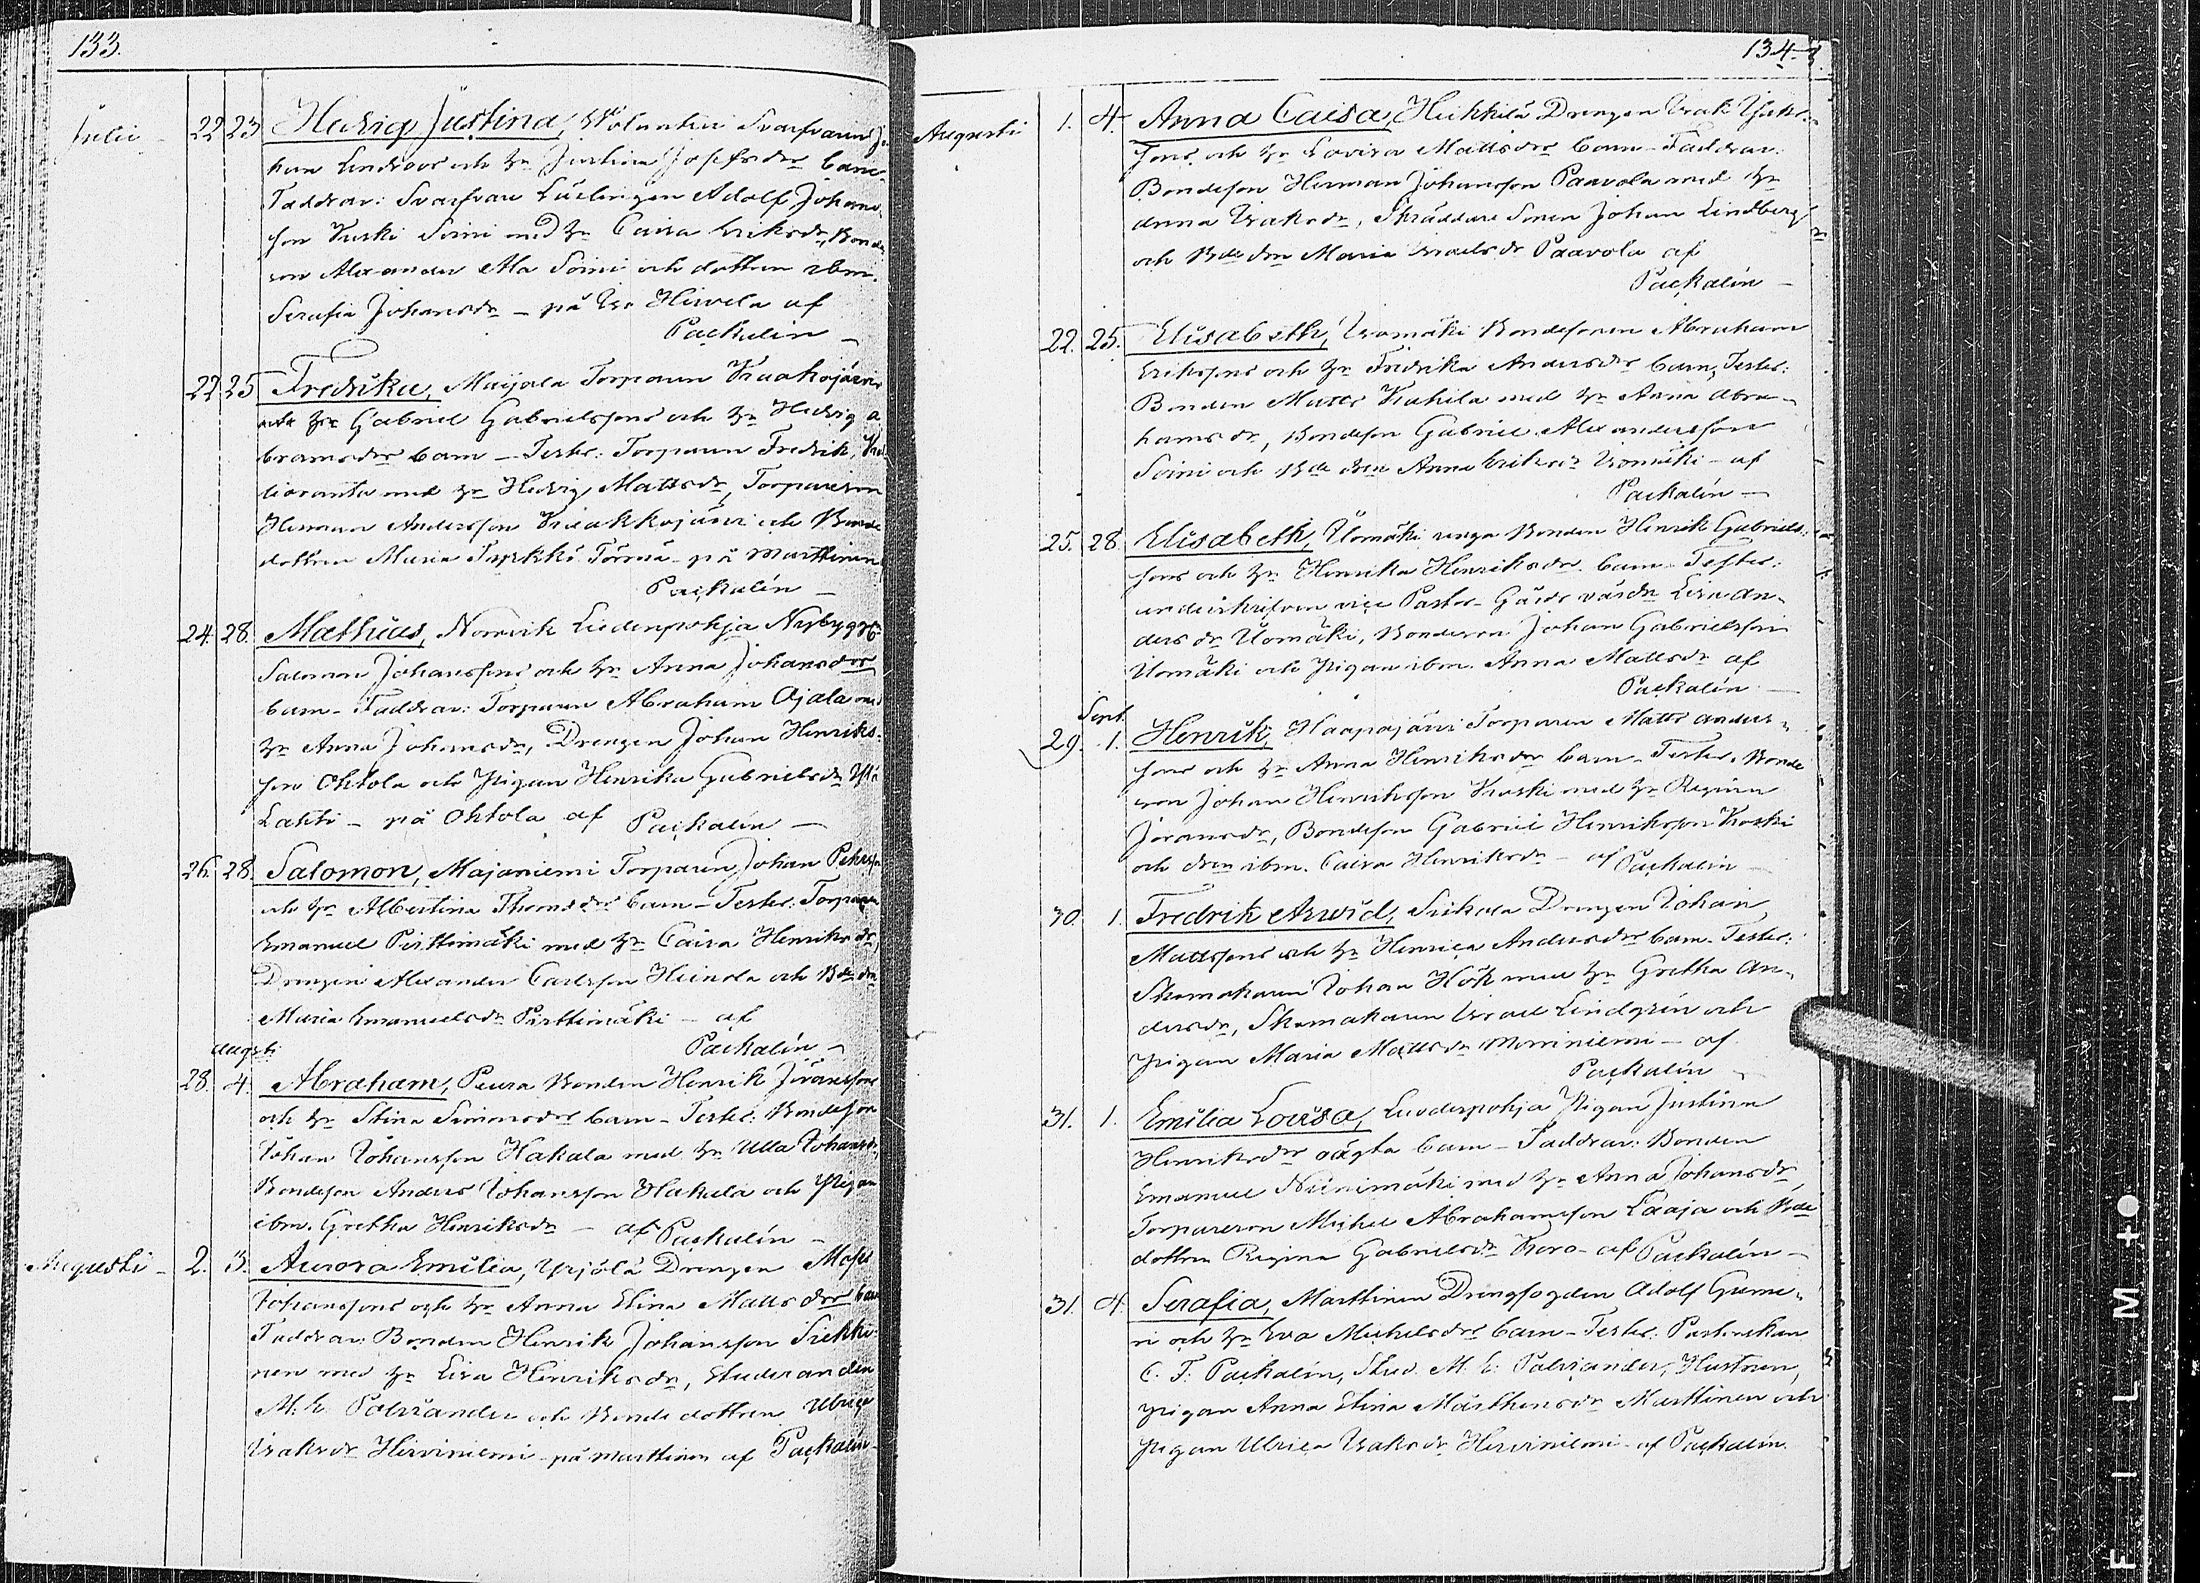 133.
Julii 22 23 Hedvig Justina, Svarfvaren Jo-
han Lindroos och hu Justina Josefsdrs barn
Faddrar: Svarfvare Lärlingen Adolf Johans-
son Soini med hu Caisa Eriksdr, Bonde
son Alexander Ala Soini och dottren ibm.
Serafia Johansdr - på Hirvela af
Paçkalén
22 25 Fredrika, Maijala Torparen
Gabriel Gabrielssons och hu Hedvig A
bramsdrs barn - Testes: Torparen Fredrik
med hu Hedvig Mattsdr, Torpareson
Herman Andersson och Bonde
dottren Maria Tyrkkö Törmä - på Marttinen
Paçkalén
24. 28. Mathias, Norrvik Liedenpohja Nybygg.
Salomon Johanssons och hu Anna Johansdrs
barn - Faddrar: Torparen Abraham Ojala med
hu Anna Johansdr, Drengen Johan Henriks-
son Ohtola och Pigan Henrika Gabrielsdr Yli
Lahti - på Ohtola af Paçkalén
26. 28. Salomon, Majaniemi Torparen Johan Pehrss
och hu Albertina Thomsdrs barn - Testes: Torparen
Emanuel Pirttimäki med hu Caisa Henriksdr
Drengen Alexander Carlsson Heinola och Bde drn
Maria Emanuelsdr Pirttimäki - af
Paçkalén
Augsti
28. 4. Abraham, Peura Bonden Henrik Jöranssons
och hu Stina Simonsdrs barn - Testes: Bondeson
Johan Johansson Hakala med hu Ulla Johansdr,
Bondeson Anders Johansson Hakala och Pigan
ibm. Gretha Henriksdr - af Paçkalén
Augusti - 2. 3. Aurora Emilia, Yrjölä Drengen Moses
Johanssons och hu Anna Stina Mattsdrs barn
Faddrar: Bonden Henrik Johansson Siekki-
nen med hu Lisa Henriksdr, Studeranden
M. E. Palviander och Bonde dottren Ulrica
Isaksdr Hirviniemi - på Marttinen af Paçkalén
134.
Augusti 1. 4. Anna Caisa, Heikkilä Drengen Isak Isaks-
sons och hu Lovisa Mattsdrs barn - Faddrar:
Bondeson Herman Johansson Paavola med hu
Anna Isaksdr, Skräddare Sonen Johan Lindberg
och Bde drn Maria Israelsdr Paavola af
Paçkalén
22. 25. Elisabeth, Isomäki Bondesonen Abraham
Erikssons och hu Fredrika Andersdrs barn, Testes:
Bonden Matts med hu Anna Abra-
hamsdr, Bondeson Gabriel Alexandersson
Soini och Bde drn Anna Eriksdr Isomäki - af
Paçkalén
25. 28. Elisabeth, Uomäki unga Bonden Henrik Gabriels-
sons och hu Henrika Henriksdrs barn - Testes:
underskrifven vice Pastor - Gårds värdn Lisa An-
dersdr Uomäki, Bondeson Johan Gabrielsson
Uomäki och Pigan ibm. Anna Mattsdr af
Paçkalén
Sept.
29. 1. Henrik, Haapajärvi Torparen Matts Anders-
sons och hu Anna Henriksdrs barn - Testes: Bonde
son Johan Henriksson Koski med hu Regina
Jöransdr, Bondeson Gabriel Henriksson Koski
och drn ibm. Caisa Henriksdr - af Paçkalén
30. 1 Fredrik Arvid, Drengen Johan
Mattssons och hu Henrica Andersdrs barn - Testes:
Skomakaren Johan Hök med hu Gretha An-
dersdr, Skomakaren Israel Lindgrén och
Pigan Maria Mattsdr - af
Paçkalén
31. 1. Emilia Lovisa, Liedenpohja Pigan Justina
Henriksdrs oägta barn - Faddrar: Bonden
Emanuel Niinimäki med hu Anna Johansdr,
Torpareson Mickel Abrahamsson Laaja och Bde
dottren Regina Gabrielsdr - af Paçkalén
31. 4. Serafia, Marttinen Drengfogden Adolf
och hu Eva Michelsdrs barn - Testes: Pastorskan
C. F. Paçkalén, Stud. M. E. Palviander, Hustrun,
Pigan Anna Stina Mårthensdr Marttinen och
Pigan Ulrica Isaksdr Hirviniemi - af Paçkalén.
FILM